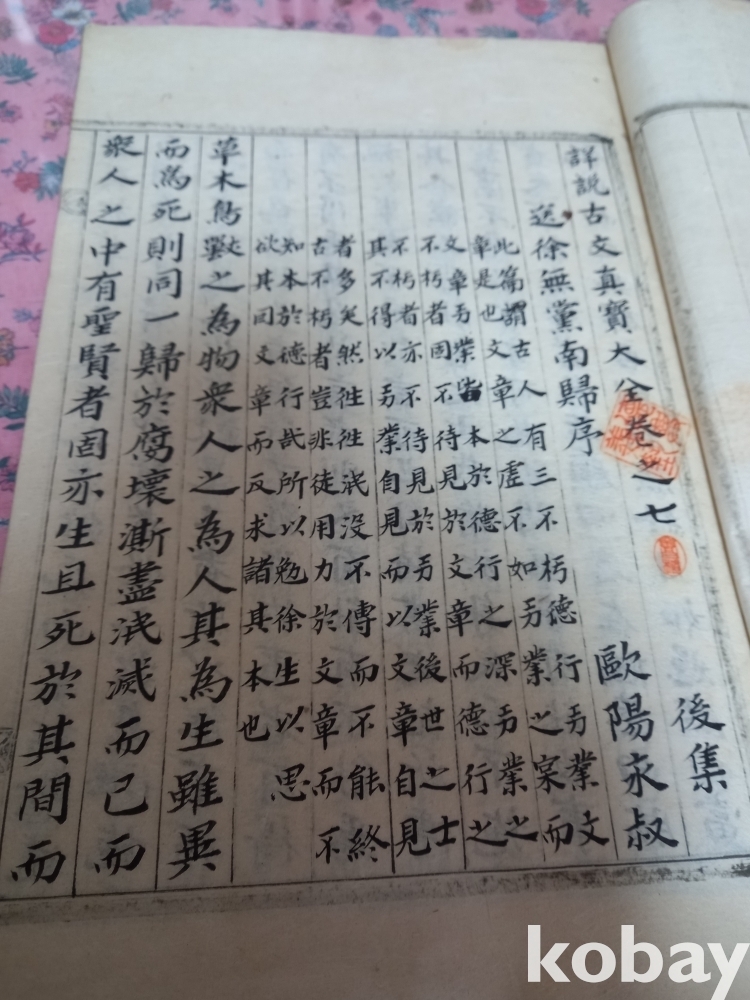 詳說古文真寶大全卷之七 後集
送徐無黨南歸序 歐陽永叔
此篇謂古人有三不朽德行功業文
章是也文章之虛不如功業之宲而
文章功業皆本於德行之深功業之
不朽者固不待見於文章而德行之
不朽者亦不待見於功業後世之士
其不得以功業自見而以文章自見
者多矣然徃徃泯沒不傳而不能終
古不朽者豈非徒用力於文章而不
知本於德行哉所以勉徐生以思
欲其因文章而反求諸其本也
草木鳥獸之為物衆人之為人其為生雖異
而為死則同一歸於腐壞澌盡泯滅而已而
衆人之中有聖賢者固亦生且死於其間而
kobay